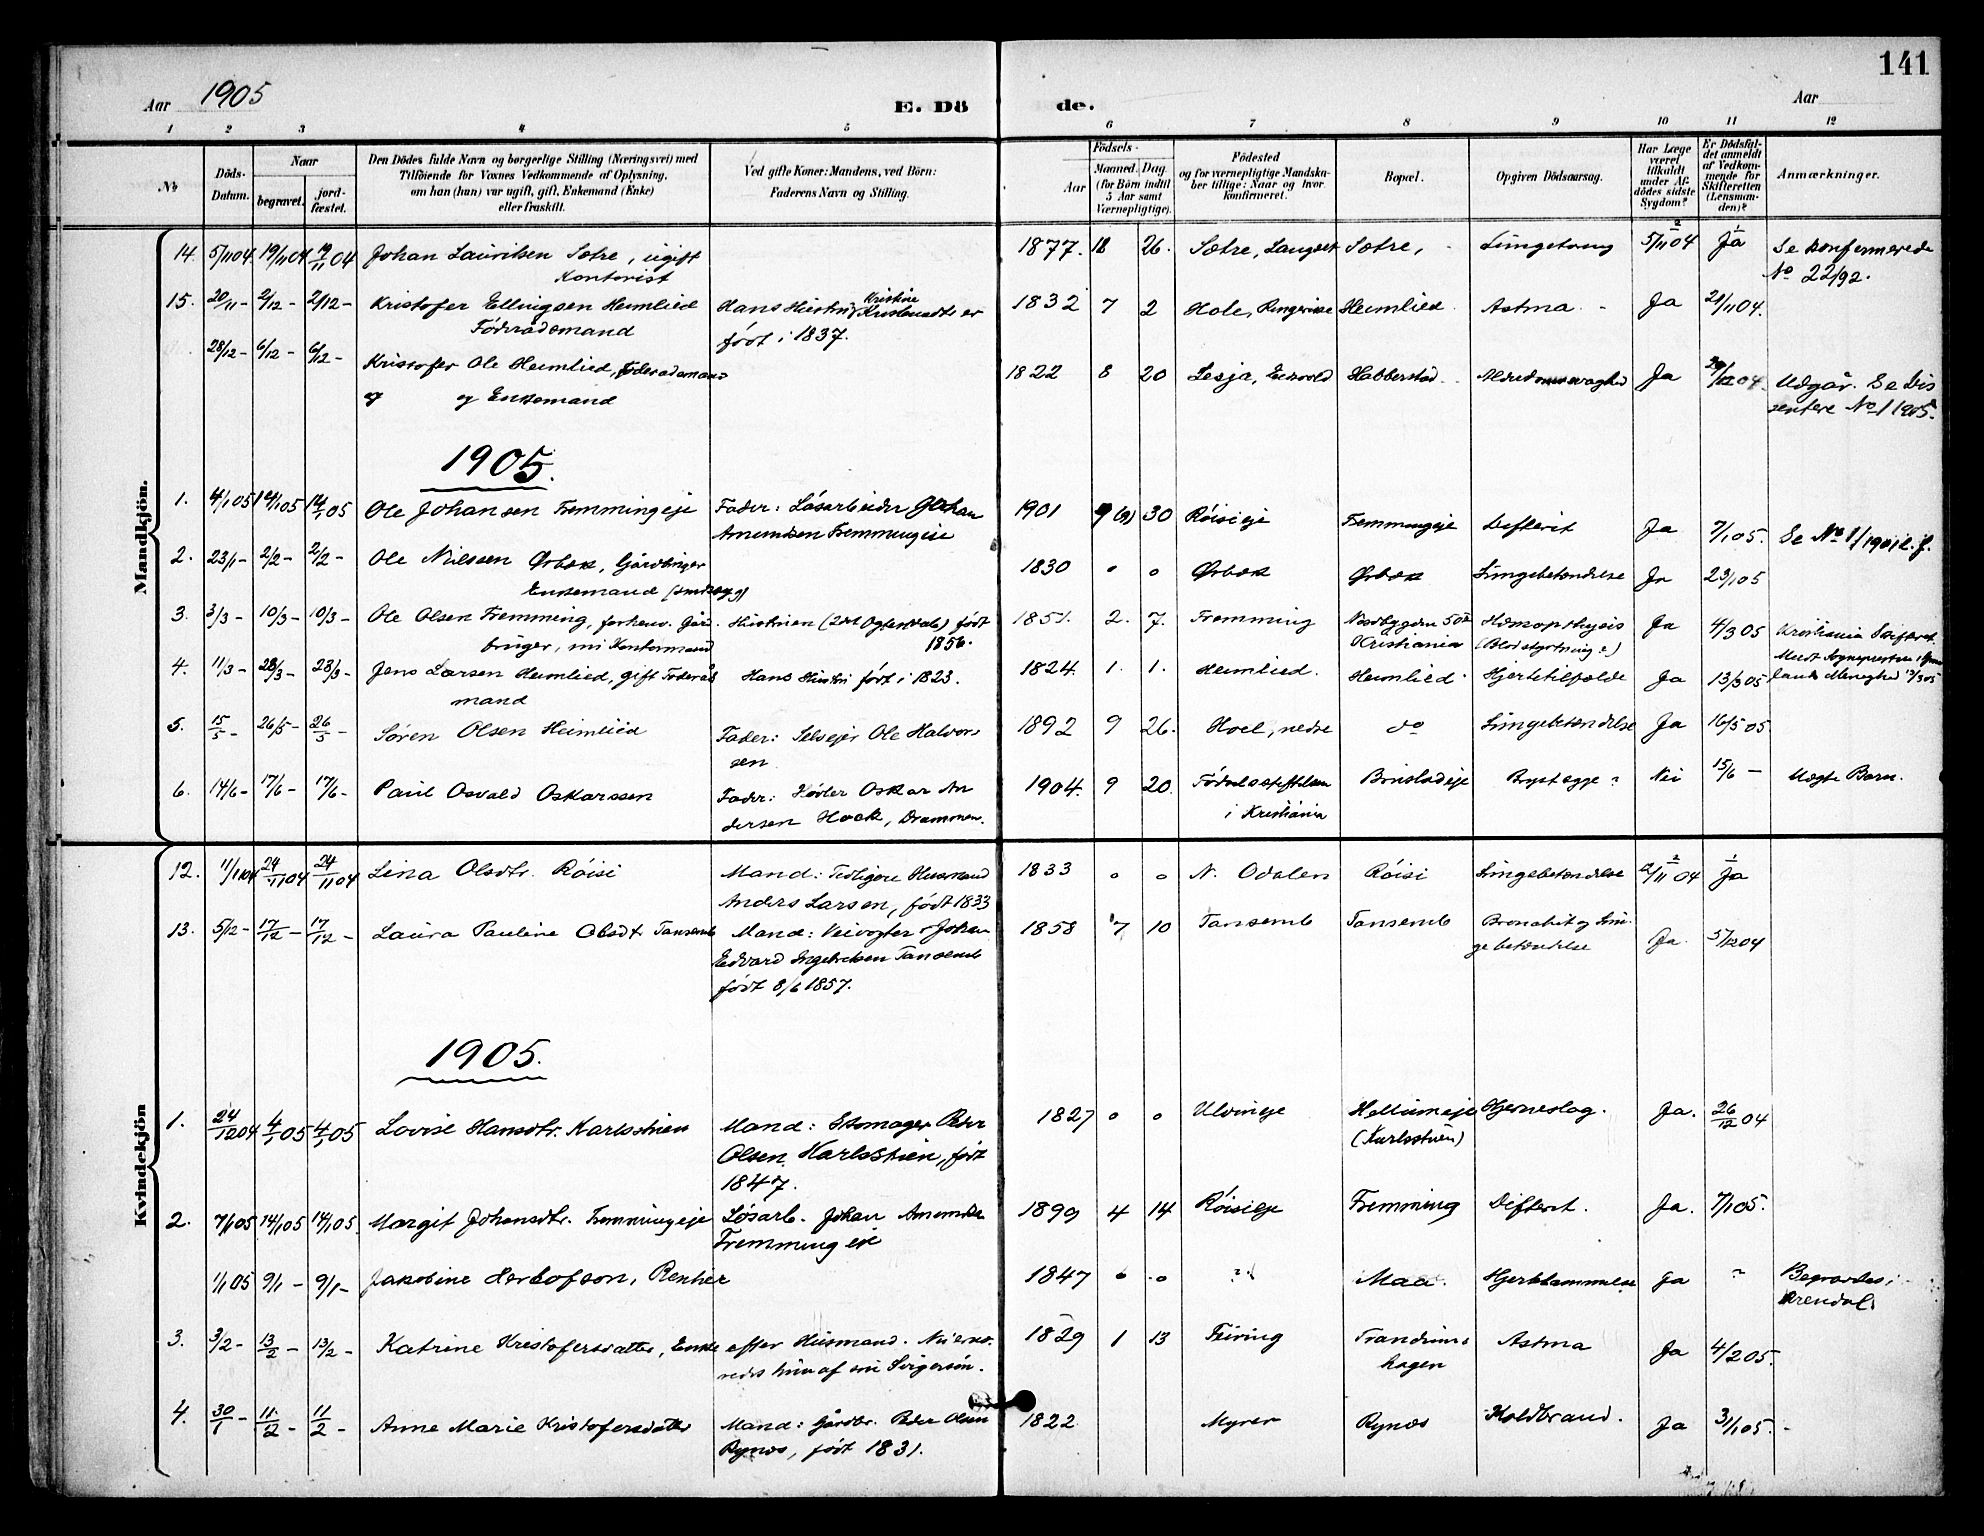 141
Aar 1905
E. Dö de.
Aar
1 2 3 4 5 6 7 8 9 10 11 12
No
Döds-Datum.
Naar
begravet.
jord-fæstet.
Den Dödes fulde Navn og borgerlige Stilling (Næringsvei) med
Tilföiende for Voxnes Vedkommende af Oplysning,
om han (hun) var ugift, gift, Enkemand (Enke)
eller fraskilt.
Ved gifte Koner: Mandens, ved Börn:
Faderens Navn og Stilling.
Födsels-
Aar
Maaned.
Dag
(for Börn indtil
5 Aar samt
Værnepligtige).
Födested
og for værnepligtige Mandska-
ber tillige: Naar og hvor
konfirmeret.
Bopæl.
Opgiven Dödsaarsag.
Har Læge
været
tilkaldt
under Af-
dödes sidste
Sygdom?
Er Dödsfal-
det anmeldt
af Vedkom-
mende for
Skifteretten
(Lensman-
den)?
Anmærkninger.
Mandkjön.
14. 5/11 04 19/11 04 19/11 04 Johan Lauritsen Sætre, ugift 1877. 26. Sætre, Langset Sætre, Lungetæring 5/11 04 Ja Se konfirmerede
Kontorist No 22/92.
15. 20/11 - 2/12 - 2/12 - Kristofer Ellingsen Heimlied Hans Hustru Kristine 1832 7 2 Hole, Ringerike Heimlied Astma - Ja 21/11 04.
Föderaadsmand født i 1837.
28/12 - 6/12 - 6/12 - Kristofer Ole Heimlied, Föderaadsmand 1822 8 20 Lesja, Habberstad Ja 04 Udgår. Se Dis
og Enkemand sentere No 1 1905.
1905.
1. 4/1 05 14/1 05 14/1 05 Ole Johansen Fremmingeie Fader: Løsarbeider Johan 1901 9 30 Röisieie Fremmingeie Difterit Ja 7/1 05. Se No 1/1901
Amundsen Fremmingeie
2. 23/1 - 2/2 - 2/2 - Ole Nielsen Ørbæk, Gårdbruger 1830 " " Ørbæk Ørbæk Lungebetændelse Ja 23/1 05
Enkemand
3. 3/3 - 10/3 - 10/3 - Ole Olsen Fremming, forhenv. Gård- Hustruen født 1851. 2. 7. Fremming Kristiania Hæmopthysis Ja 4/3 05 Kristiania Skifteret.
bruger, nu Kontormand 1856. (Blodstyrtning?)
4. 11/3 - 23/3 - 23/3 - Jens Larsen Heimlied, gift Föderåds Hans Hustru født i 1823. 1824. 1. 1. Heimlied. Heimlied Hjertetilfælde Ja 13/3 05
mand
5. 15/5 - 26/5 - 26/5 - Søren Olsen Heimlied Fader: Selveier Ole Halvor- 1892 9 26. Hoel, nedre do Lungebetændelse Ja 16/5 05
sen
6. 14/6 - 17/6 - 17/6 - Paul Osvald Oskarssen Fader: Høvler Oskar An 1904. 9 20. Födselsstiftelsen Brystsyge? Nei 15/6 - Uægte Barn.
dersen Hoek, Drammen. i Kristiania
Kvindekjön
12. 11/11 04 24/11 04 24/11 04 Lina Olsdtr. Röisi Mand: Tidligere Husmand 1833 " " N. Odalen Röisi Lungebetændelse 12/11 04 Ja
Anders Larsen, født 1833
13. 5/12 - 17/12 - 17/12 - Laura Pauline Olsdt. Tansemb Mand: Veivogter Johan 1858 7 10 Tansemb Tansemb Bronchit og Lun- Ja. 5/12 04
Edvard Ingebretsen Tansemb gebetændelse
født 8/6 1857.
1905.
1. 24/12 04 4/1 05 4/1 05 Lovise Hansdtr. Karlsstuen Mand: Skomager Peder 1827 " " Ulvineie Hellumeie Hjerneslag. Ja. 26/12 04
Olsen Karlsstuen, født (Karlsstuen)
1847.
2. 7/1 05 14/1 05 14/1 05. Margit Johansdtr. Fremmingeie Løsarb. Johan Amundsen 1899 4 14 Röisieie Fremming Difterit. Ja. 7/1 05.
Fremmingeie
1/1 05 9/1 - 9/1 - Jakobine Herlofson, Rentier 1847 " " ? Maa. Hjertelammelse Ja ? Begravedes i
Arendal.
3. 3/2 - 13/2 - 13/2 - Katrine Kristofersdatter, Enke efter Husmand. Nu ernæ- 1829 1 13 Feiring Trandums Astma Ja 4/2 05.
redes hun af sin Svigersøn. hagen
4. 30/1 - 11/2 - 11/2 - Anne Marie Kristofersdatter Mand: Gårdbr. Peder Olsen 1822 Myrer Rynæs Koldbrand. Ja 31/1 05.
Rynæs, født 1831.